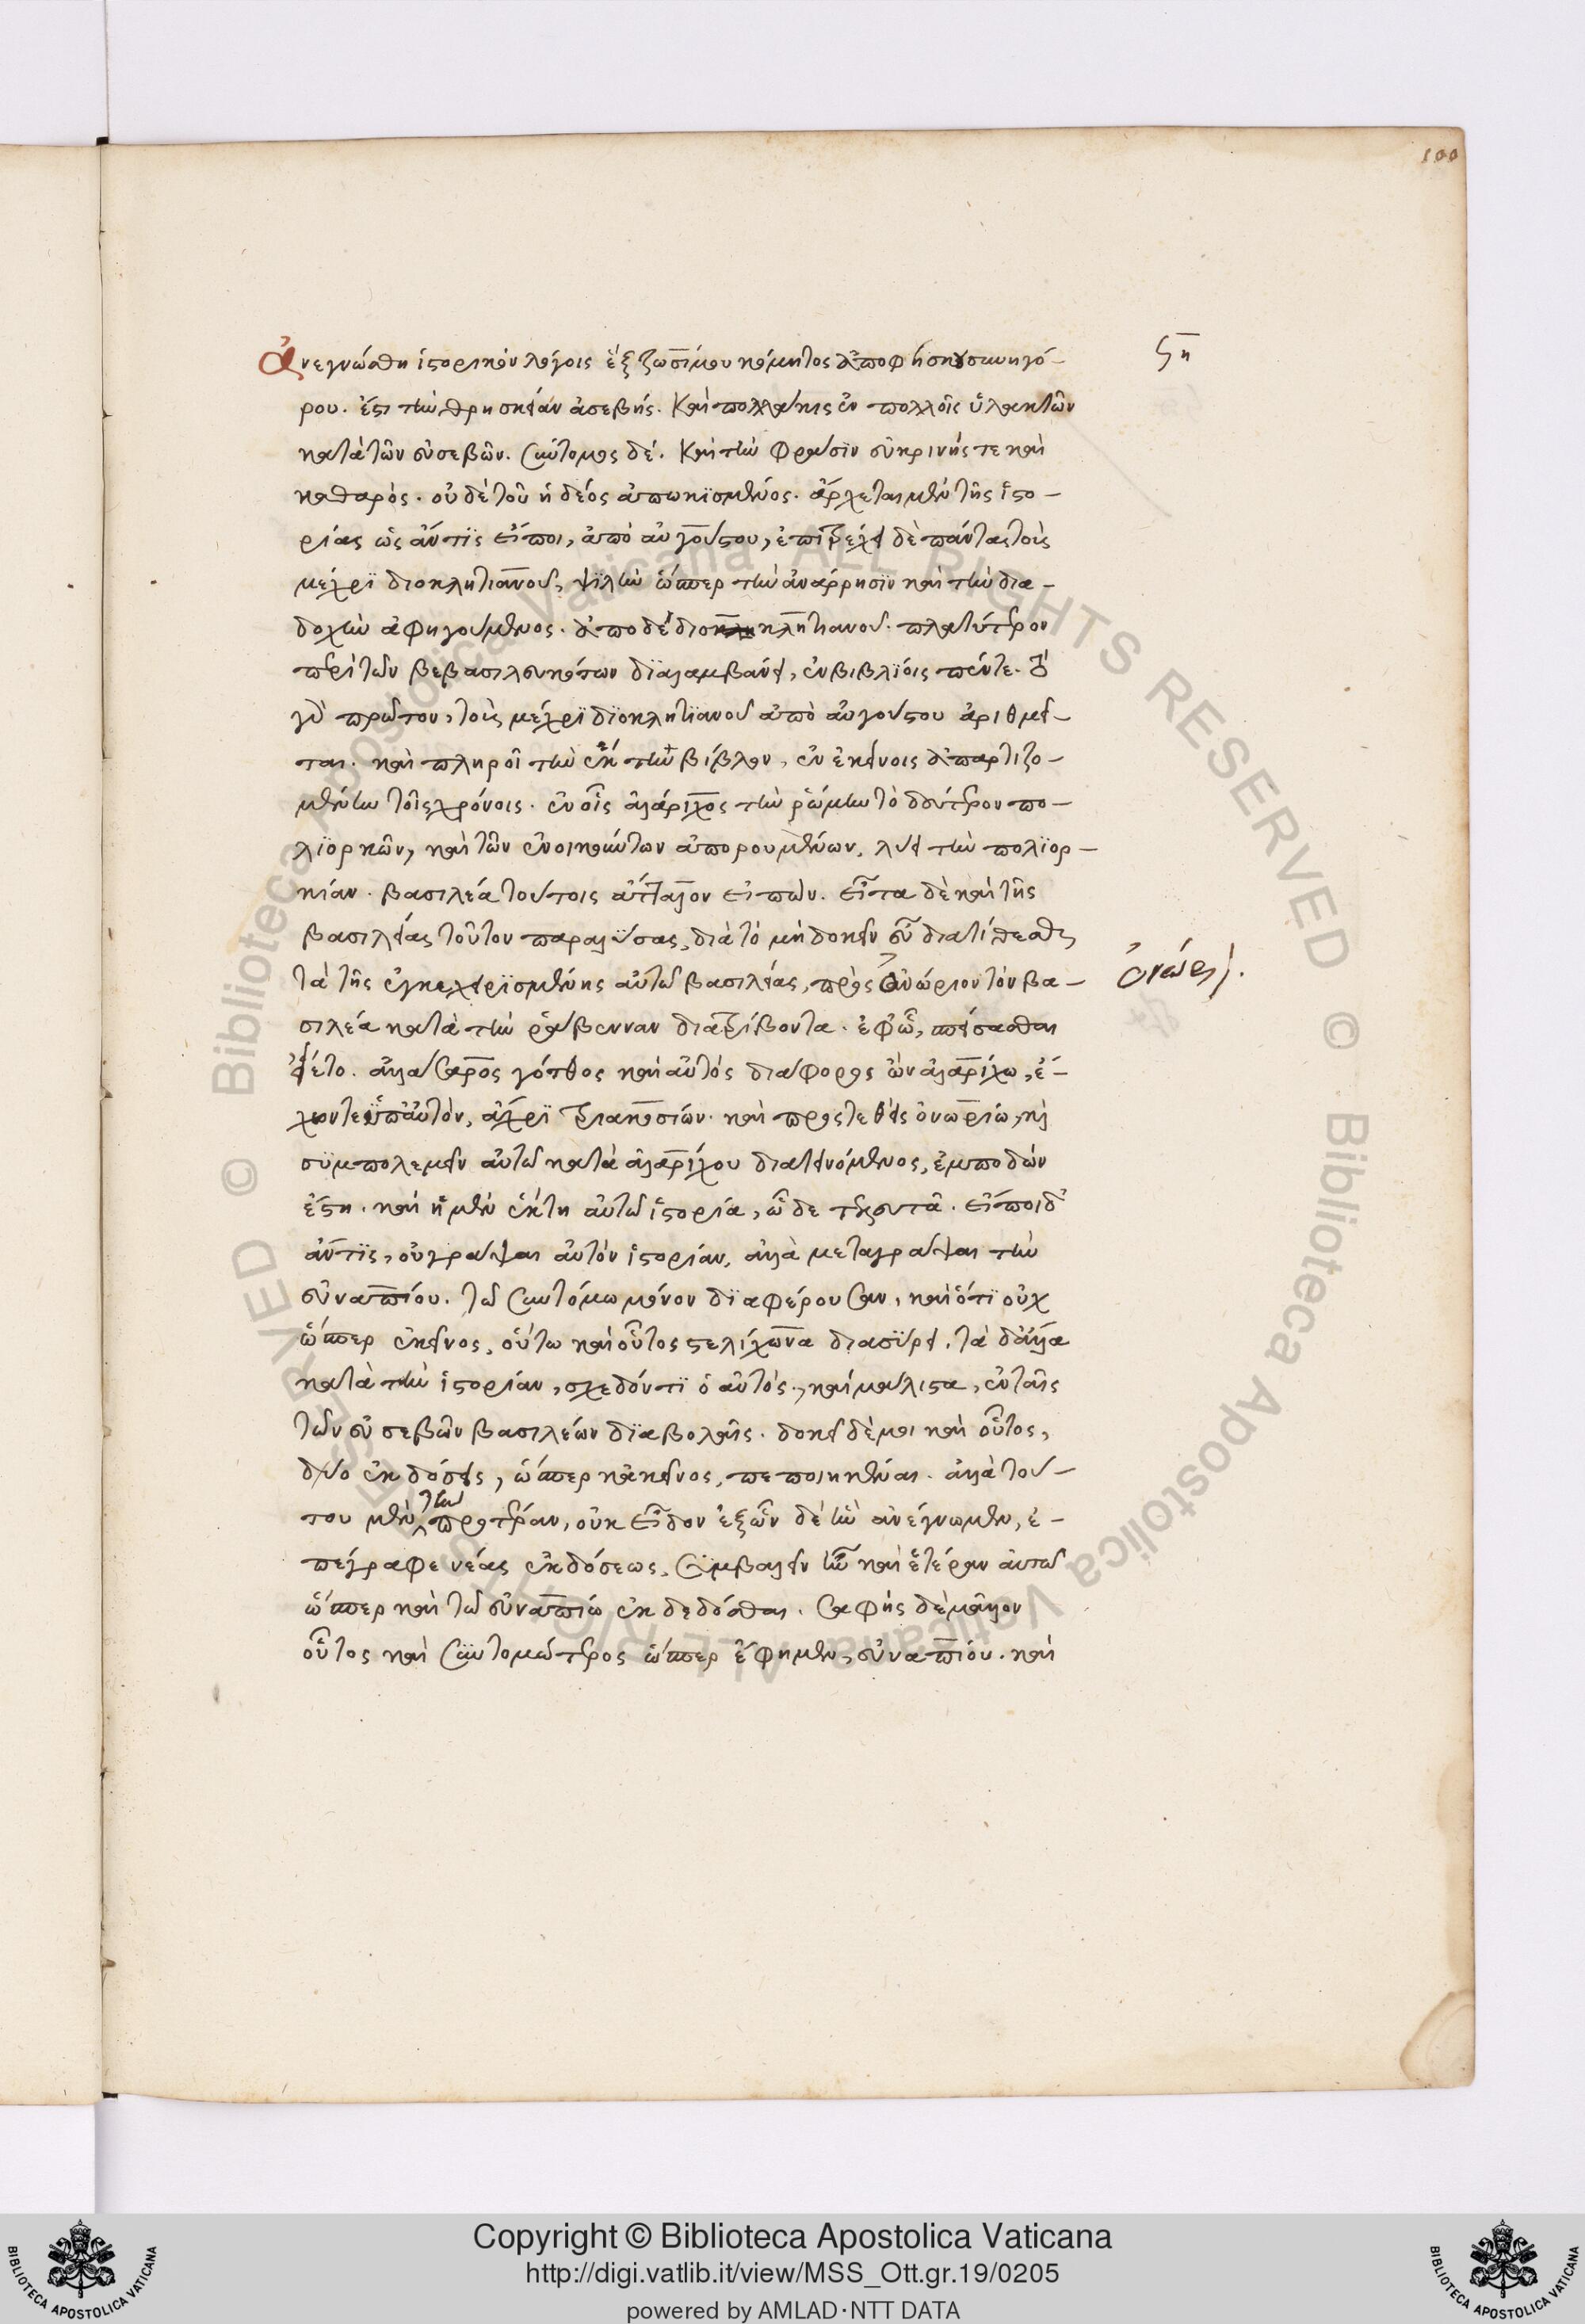 100
Ϟη
Ἀνεγνώσθη ἱστορικὸν λόγοις ἓξ ζωσίμου κόμητος ἀπο φήσκου συνηγό-
ρου. ἔστι τὴν θρησκείαν ἀσεβής. Καὶ πολλάκις ἐν πολλοῖς ὑλακτῶν
κατὰ τῶν εὐσεβῶν. σύντομος δέ. Καὶ τὴν φράσιν εὐκρινής τε καὶ
καθαρός. οὐδὲ τοῦ ἡδέος ἀπῳκισμένος. ἄρχεται μὲν τῆς ἱστο-
ρίας ὡς ἄν τις εἴποι, ἀπὸ αὐγούστου, ἐπιτρέχει δὲ πάντας τοὺς
μέχρι διοκλητιανοῦ, ψιλὴν ὥσπερ τὴν ἀνάρρησιν καὶ τὴν δια-
δοχὴν ἀφηγούμενος. ἀπὸ δὲ διοκλητιανοῦ. πλατύτερον
περὶ τῶν βεβασιλευκότων διαλαμβάνει, ἐν βιβλίοις πέντε. ὁ
γὰρ πρῶτον, τοὺς μέχρι διοκλητιανοῦ ἀπὸ αὐγούστου ἀριθμεῖ-
ται. καὶ πληροῖ τὴν ἕκτην βίβλον, ἐν ἐκείνοις ἀπαρτιζο-
μένην τοῖς χρόνοις. ἐν οἷς ἀλάριχος τὴν ῥώμην τὸ δεύτερον πο-
λιορκῶν, καὶ τῶν ἐνοικούντων ἀπορουμένων, λύει τὴν πολιορ-
κίαν. βασιλέα τούτοις ἄτταλον εἰπών. εἶτα δὲ καὶ τῆς
βασιλείας τοῦτον παραλύσας, διὰ τὸ μὴ δοκεῖν εὖ διατίθεσθαι
τὰ τῆς ἐγκεχειρισμένης αὐτῷ βασιλείας, πρὸς Ὀνώριον τὸν βα-
ὀνώρι.
σιλέα κατὰ τὴν ῥάβενναν διατρίβοντα. ἐφ' ᾧ, πείσασθαι
ᾔετο. ἀλλὰ σάρος γότθος καὶ αὐτὸς διάφορος ὢν ἀλαρίχῳ, ἔ-
χων τε ὑπ' αὐτὸν, ἄχρι τριακοσίων. καὶ προστεθεὶς ὀνωρίῳ, καὶ
συμπολεμεῖν αὐτῷ κατὰ ἀλαρίχου διατεινόμενος, ἐμποδὼν
ἔστη. καὶ ἡ μὲν ἕκτη αὐτῷ ἱστορία, ὧδε τελευτᾷ. εἴποι δ'
ἄν τις, οὐ γράψαι αὐτὸν ἱστορίαν, ἀλλὰ μεταγράψαι τὴν
εὐναπίου. τῷ συντόμῳ μόνον διαφέρουσαν, καὶ ὅτι οὐχ
ὥσπερ ἐκεῖνος, οὕτω καὶ οὗτος στελίχωνα διασύρει, τὰ δ' ἄλλα
κατὰ τὴν ἱστορίαν, σχεδόν τι ὁ αὐτός, καὶ μάλιστα, ἐν ταῖς
τῶν εὐσεβῶν βασιλέων διαβολαῖς. δοκεῖ δέ μοι καὶ οὗτος,
δύο ἐκδόσεις, ὥσπερ κἀκεῖνος, πεποιηκέναι. ἀλλὰ τού-
του μὲν τὴν προτέραν, οὐκ εἶδον ἐξ ὧν δὲ ἣν ἀνέγνωμεν, ἐ-
πέγραφε νέας ἐκδόσεως, συμβαλεῖν ἦν καὶ ἑτέραν αὐτῷ
ὥσπερ καὶ τῷ εὐναπίῳ ἐκδεδόσθαι. σαφὴς δὲ μᾶλλον
οὗτος καὶ συντομώτερος ὥσπερ ἔφημεν, εὐναπίου. καὶ
Copyright © Biblioteca Apostolica Vaticana
http://digi.vatlib.it/view/MSS_Ott.gr.19/0205
powered by AMLAD·NTT DATA